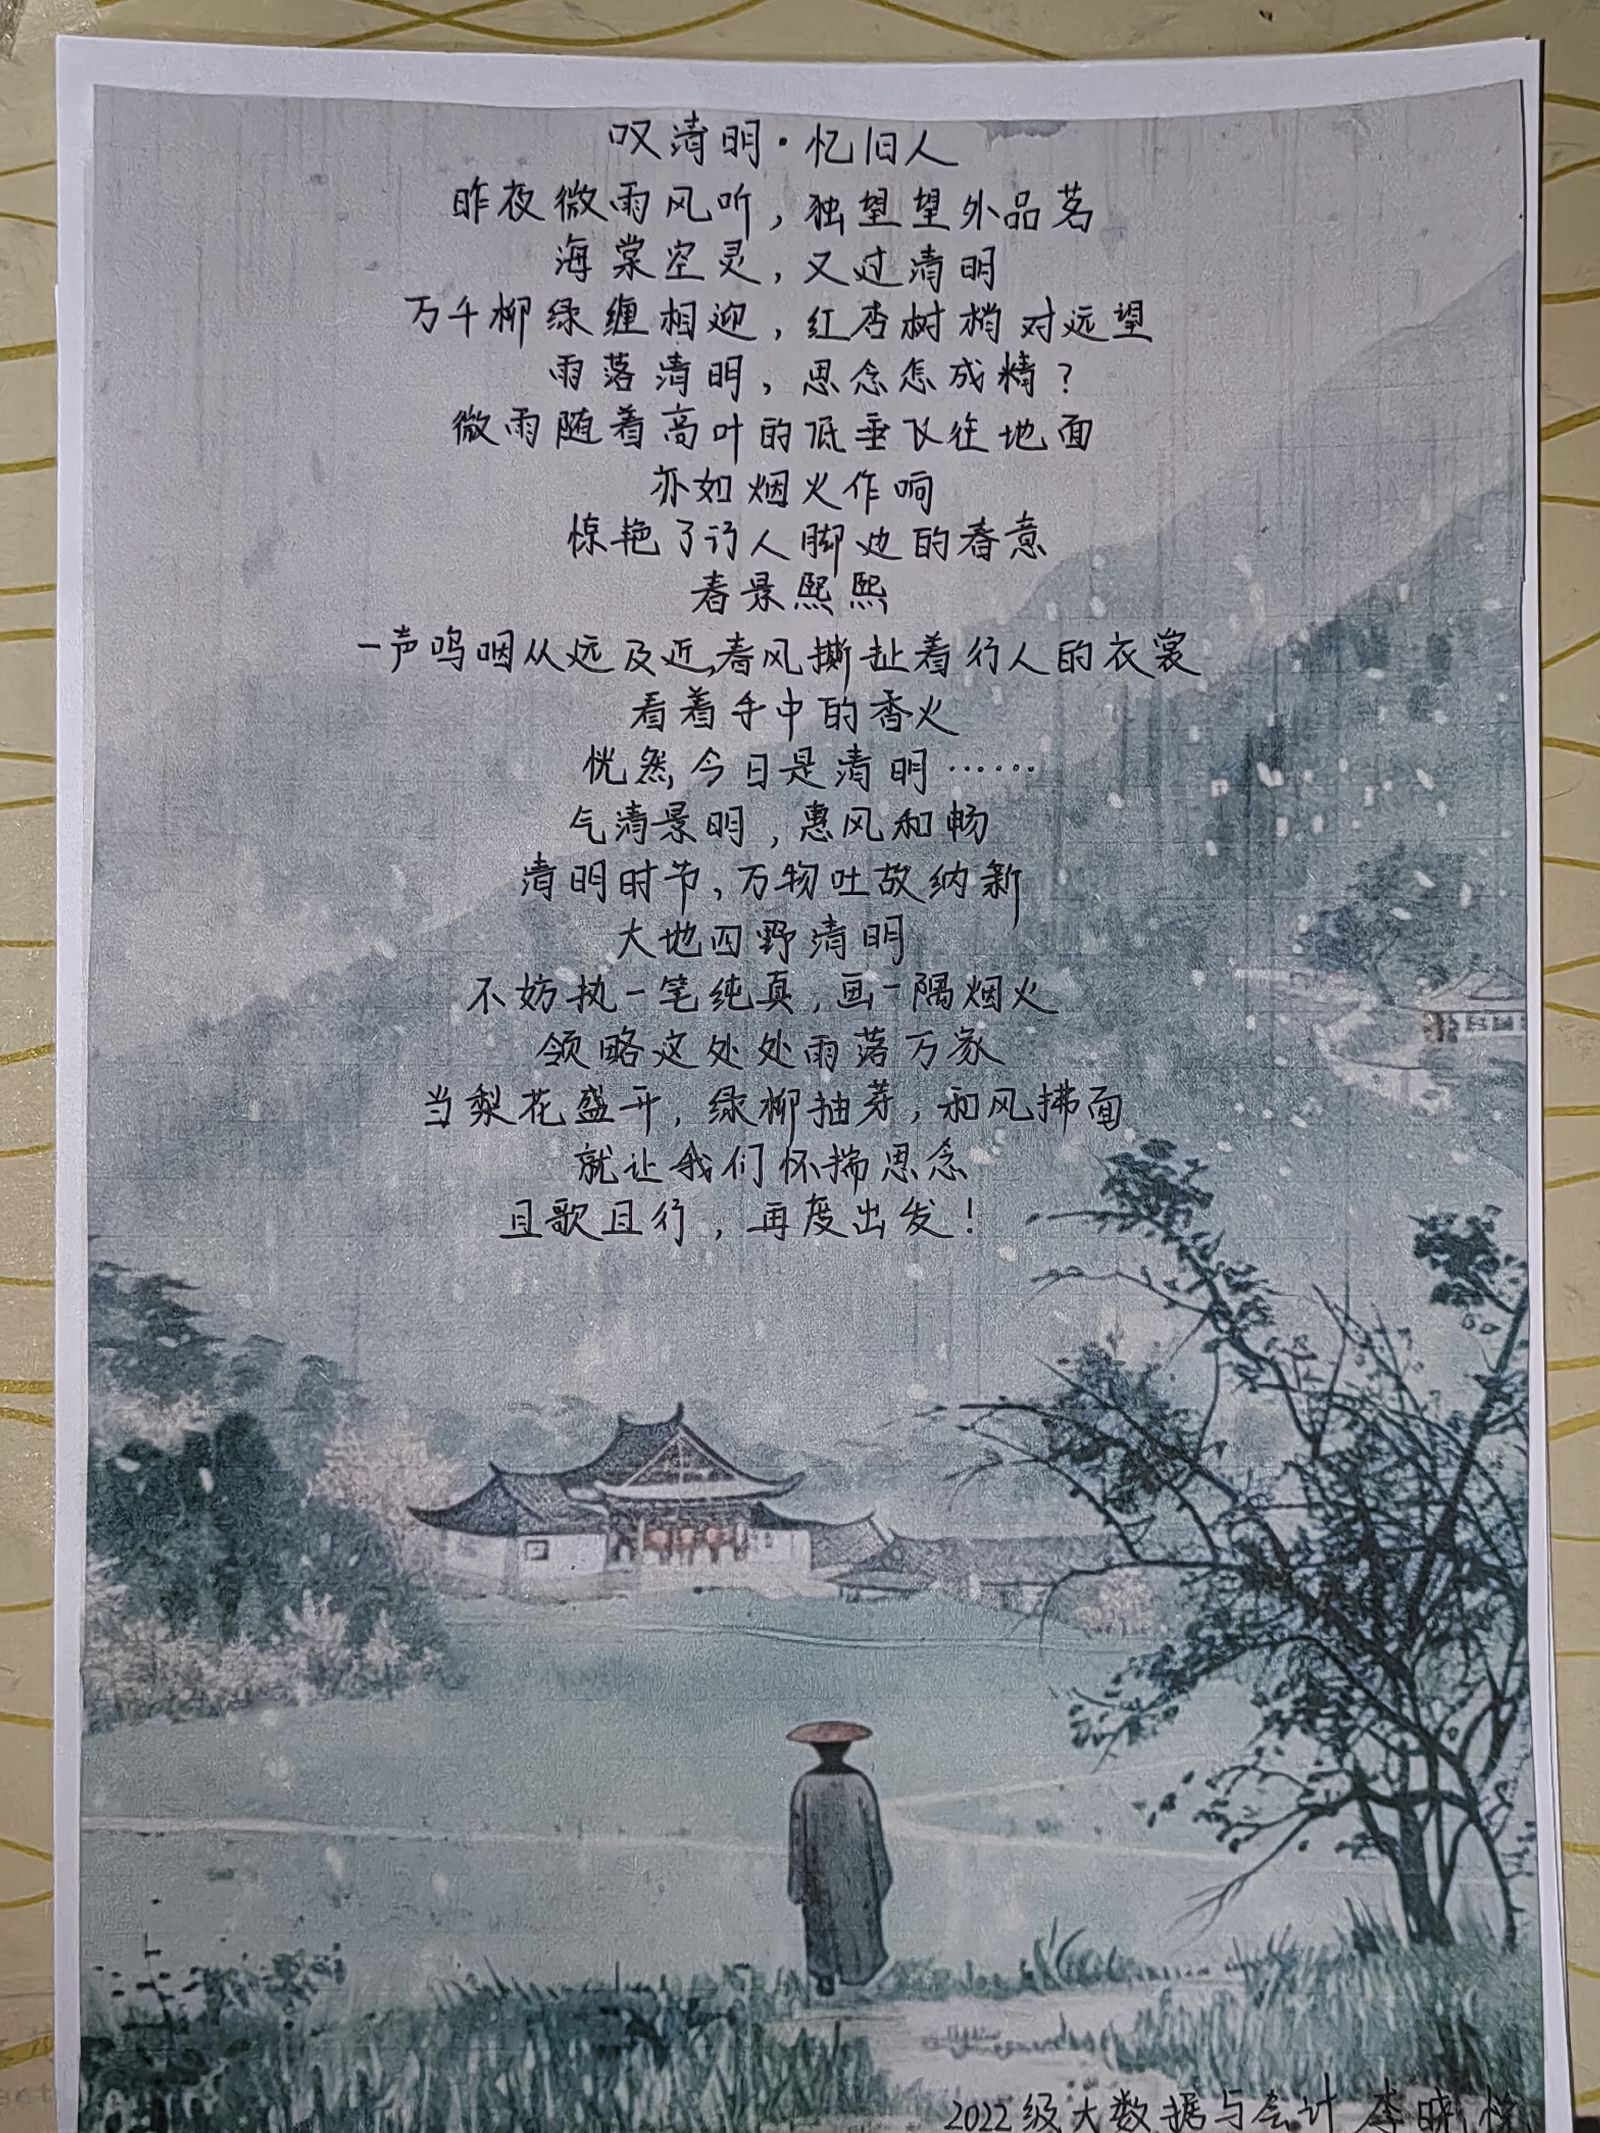 叹清明·忆旧人
昨夜微雨风听，独望望外品茗
海棠空灵，又过清明
万千柳绿缠相迎，红杏树梢对远望
雨落清明，思念怎成精？
微雨随着高叶的低垂飞往地面
亦如烟火作响
惊艳了行人脚边的春意
春景熙熙
一声呜咽从远及近，春风撕扯着行人的衣裳
看着手中的香火
恍然，今日是清明……
气清景明，惠风和畅
清明时节，万物吐故纳新
大地四野清明
不妨执一笔纯真，画一隅烟火
领略这处处雨落万家
当梨花盛开，绿柳抽芽，和风拂面
就让我们怀揣思念
且歌且行，再度出发！
2022级大数据与会计 李晓